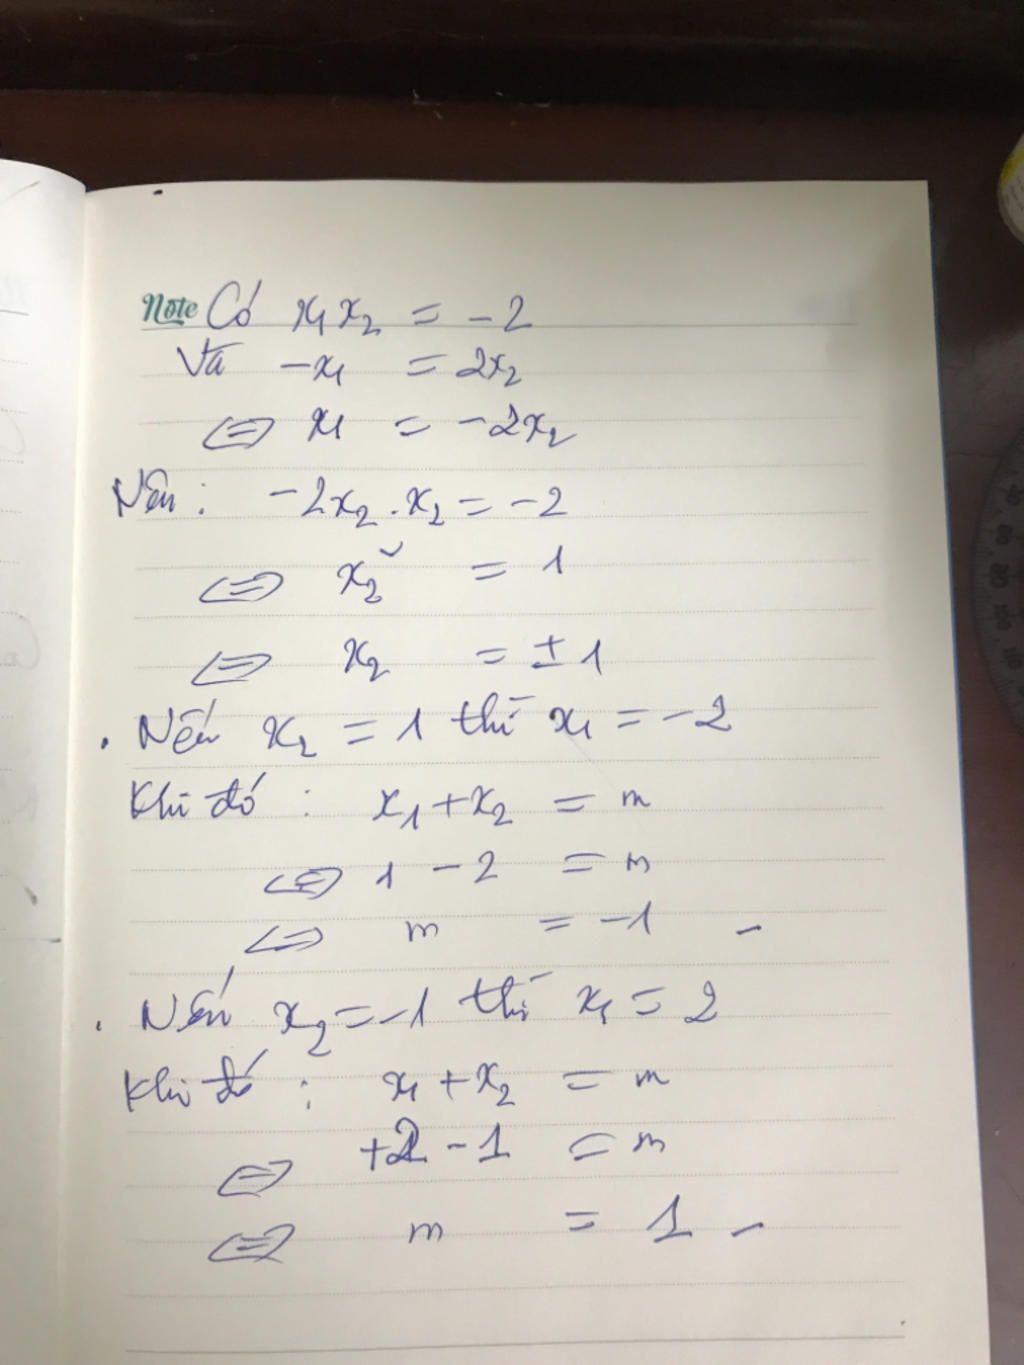 Note Có x₁x₂ = -2
Và -x₁ = 2x₂
⇔ x₁ = -2x₂
Nên : -2x₂.x₂ = -2
⇔ x₂² = 1
⇔ x₂ = ±1
. Nếu x₂ = 1 thì x₁ = -2
Khi đó : x₁+x₂ = m
⇔ 1 - 2 = m
⇔ m = -1
. Nếu x₂ = -1 thì x₁ = 2
Khi đó : x₁+x₂ = m
⇔ +2 - 1 = m
⇔ m = 1